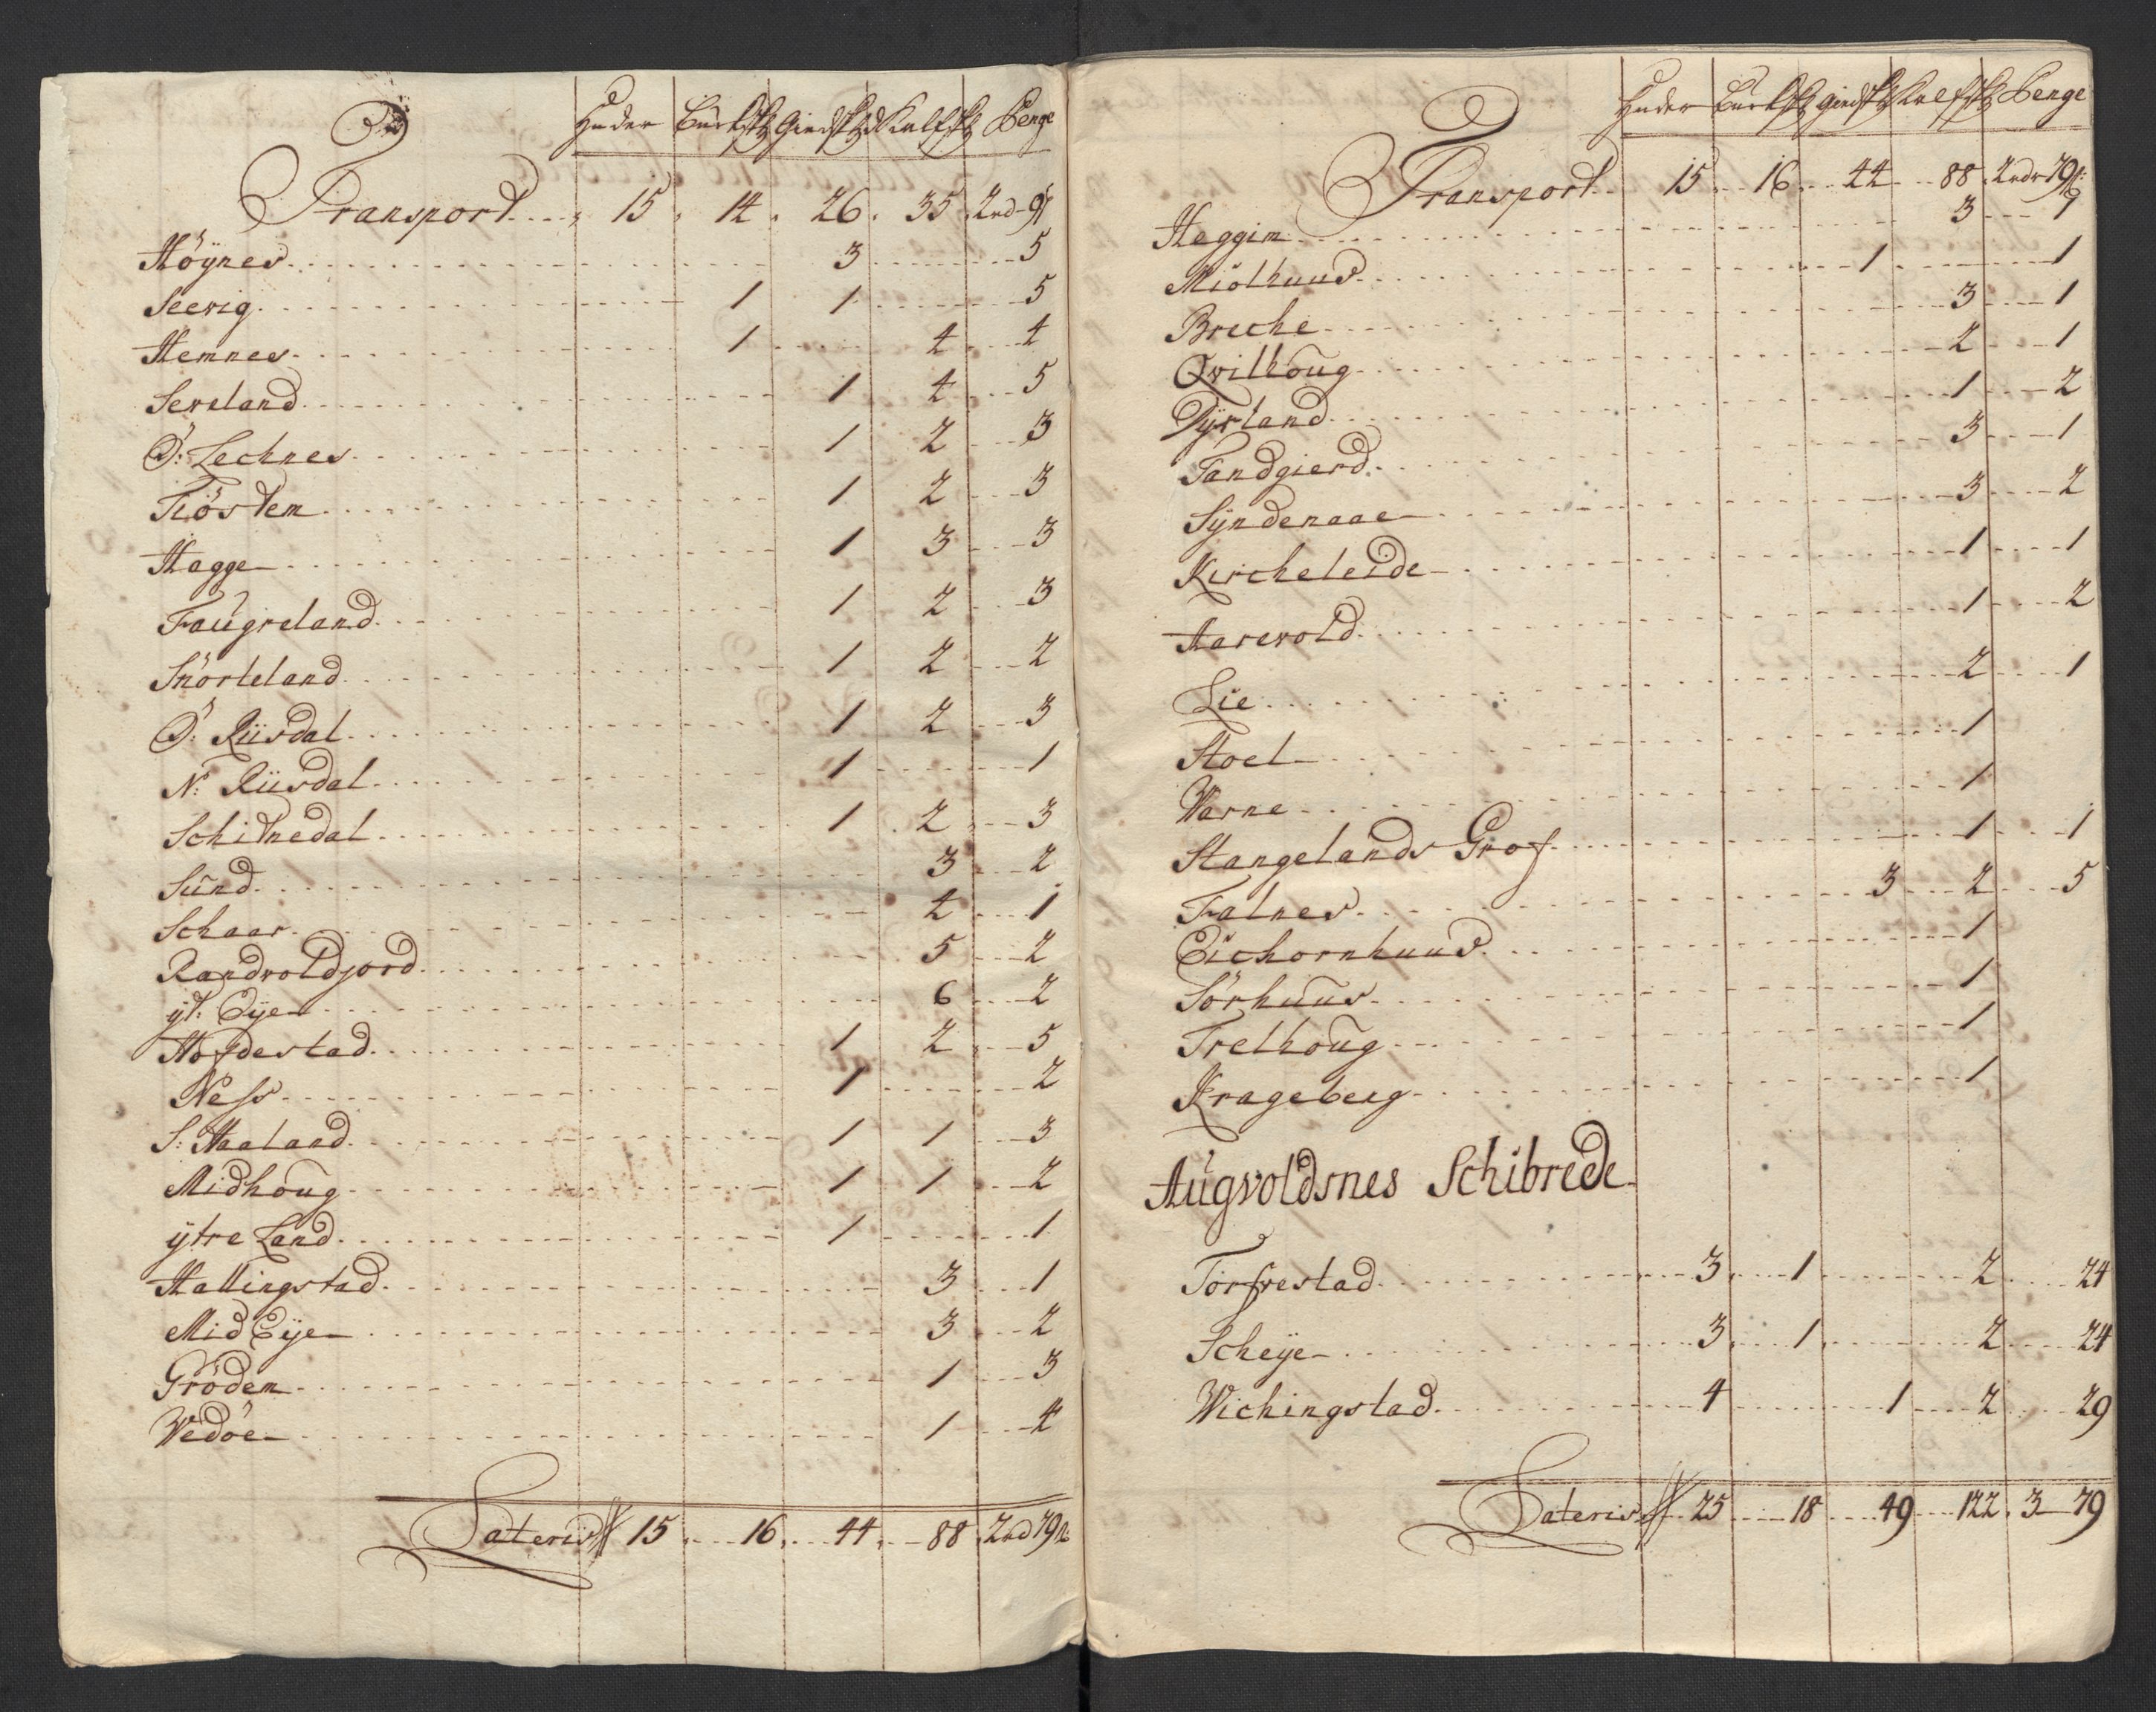 Huder Buckskd Giedskd Kalfskd Penge
Transport 15 14 26 35 2rd 9
Höÿnes 3 5
Seevig 1 1 5
Hemnes 1 4 4
Sereland 1 4 5
Ö: Lechnes 1 2 3
Tiösten 1 2 3
Hagge 1 3 3
Faugreland 1 2 3
Snorteland 1 2 2
Ö: Riisdal 1 2 3
N: Riisdal 1 1
Schitnedal 1 2 3
Sund 3 2
Schaar 4 1
Randvoldjord 5 2
ÿt: Eÿe 6 2
Hofdestad 1 2 5
Ness 1 2
S: Haaland 1 1 3
Midhoug 1 1 2
ÿtre Land 1 1
Hallingstad 3 1
Mid Eÿe 3 2
Gröden 1 3
Vedöe 1 4
Lateris 15 16 44 88 2rd 79
Huder Buckskd Giedskd Kalfskd Penge
Transport 15 16 44 88 2rdr 79
Heggim 3 1
Miölhuus 1 1
Breche 3 1
Qvilhoug 2 1
Dÿrland 1 2
Tandgierd 3 1
Sÿndenaae 3 2
Kircheleide 1 1
Aarevold 1 2
Lie 2 1
Stoel 1
Warne 1
Stangelands Grof 1 1
Falnes 3 2 5
Eichornhuus 1
Sörhuus 1
Trelhoug 1
Krageberg 1
Augvoldsnes Schibrede
Torfvestad 3 1 2 24
Scheÿe 3 1 2 24
Wichingstad 4 1 2 29
Lateris 25 18 49 122 3 79